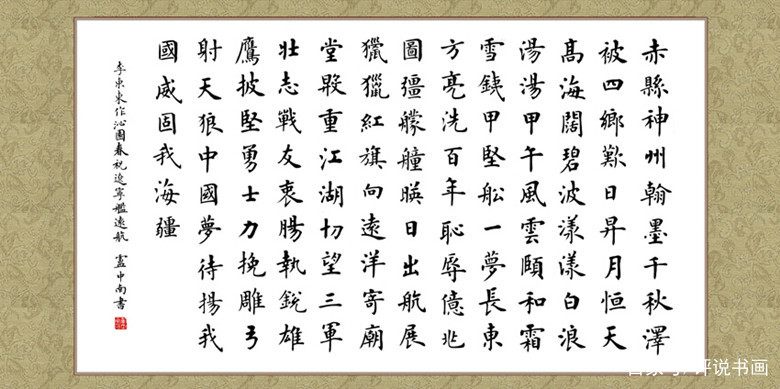 赤縣神州翰墨千秋澤
被四鄉歎日昇月恒天
高海闊碧波漾漾白浪
湯湯甲午風雲頤和霜
雪鐵甲堅船一夢長東
方亮洗百年恥辱億兆
圖彊艨艟暎日出航展
獵獵紅旗向遠洋寄廟
堂殷重江湖切望三軍
壯志戰友衷腸執銳雄
鷹披堅勇士力挽雕弓
射天狼中國夢待揚我
國威固我海疆
李東東作沁園春祝遼寧艦遠航 盧中南書
百家号/评说书画